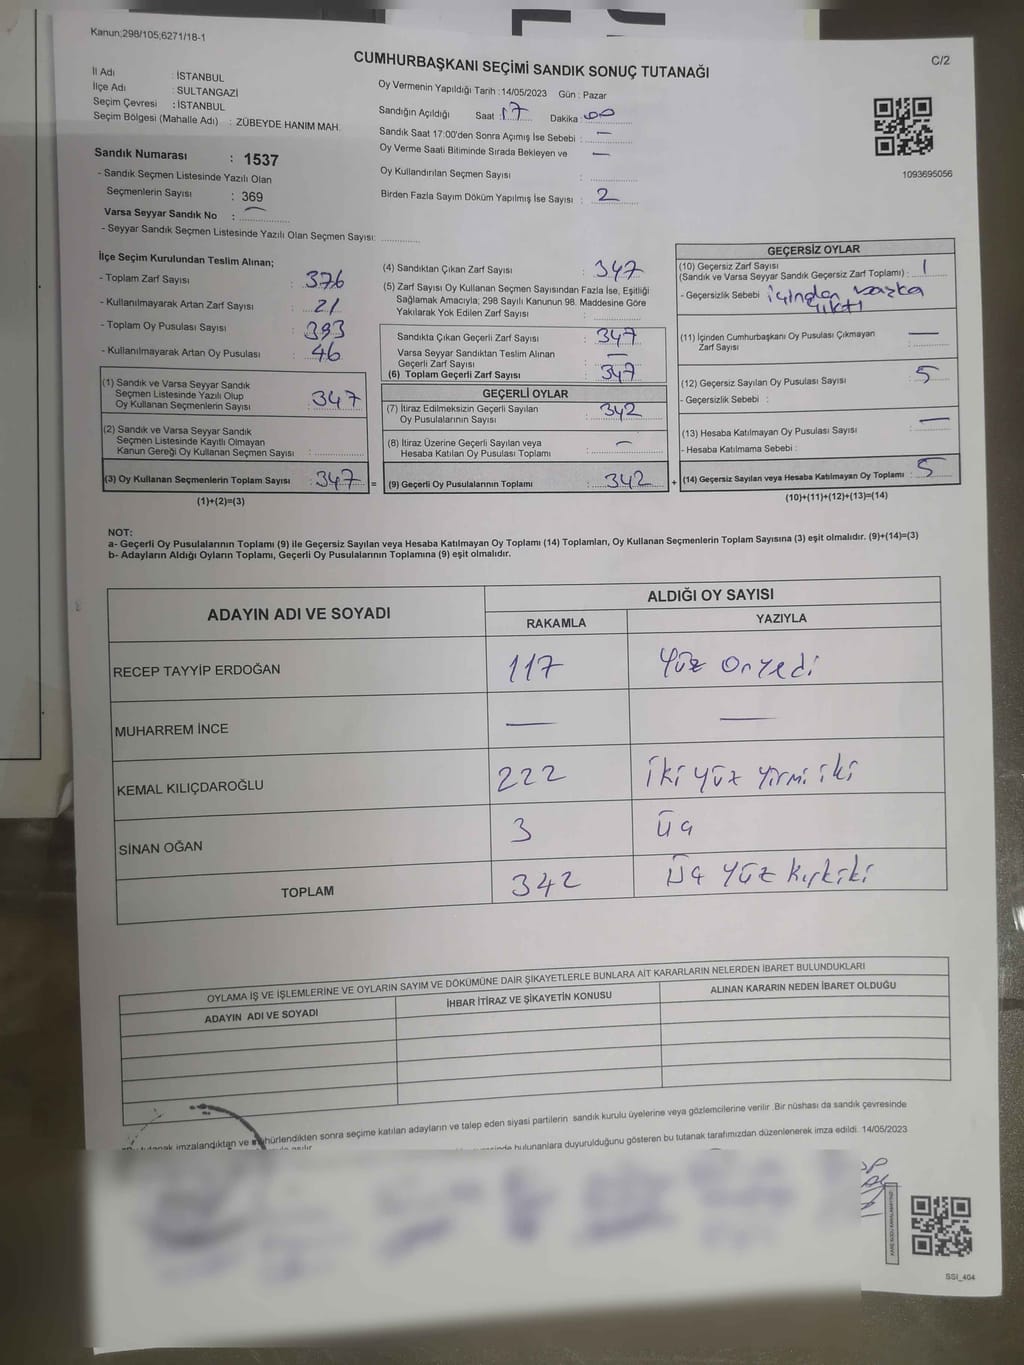 Kanun;298/105,6271/18-1
C/2
CUMHURBAŞKANI SEÇİMİ SANDIK SONUÇ TUTANAĞI
İl Adı : İSTANBUL
İlçe Adı : SULTANGAZİ
Seçim Çevresi : İSTANBUL
Seçim Bölgesi (Mahalle Adı) : ZÜBEYDE HANIM MAH.
Sandık Numarası : 1537
- Sandık Seçmen Listesinde Yazılı Olan
Seçmenlerin Sayısı : 369
Varsa Seyyar Sandık No : —
- Seyyar Sandık Seçmen Listesinde Yazılı Olan Seçmen Sayısı:
Oy Vermenin Yapıldığı Tarih : 14/05/2023 Gün : Pazar
Sandığın Açıldığı Saat : 17 Dakika : 00
Sandık Saat 17:00'den Sonra Açımış İse Sebebi : —
Oy Verme Saati Bitiminde Sırada Bekleyen ve —
Oy Kullandırılan Seçmen Sayısı :
Birden Fazla Sayım Döküm Yapılmış İse Sayısı : 2
1093695056
İlçe Seçim Kurulundan Teslim Alınan;
- Toplam Zarf Sayısı : 376
- Kullanılmayarak Artan Zarf Sayısı : 21
- Toplam Oy Pusulası Sayısı : 393
- Kullanılmayarak Artan Oy Pusulası : 46
(1) Sandık ve Varsa Seyyar Sandık
Seçmen Listesinde Yazılı Olup
Oy Kullanan Seçmenlerin Sayısı : 347
(2) Sandık ve Varsa Seyyar Sandık
Seçmen Listesinde Kayıtlı Olmayan
Kanun Gereği Oy Kullanan Seçmen Sayısı :
(3) Oy Kullanan Seçmenlerin Toplam Sayısı : 347
(1)+(2)=(3)
=
(4) Sandıktan Çıkan Zarf Sayısı : 347
(5) Zarf Sayısı Oy Kullanan Seçmen Sayısından Fazla İse, Eşitliği
Sağlamak Amacıyla; 298 Sayılı Kanunun 98. Maddesine Göre
Yakılarak Yok Edilen Zarf Sayısı :
Sandıkta Çıkan Geçerli Zarf Sayısı : 347
Varsa Seyyar Sandıktan Teslim Alınan
Geçerli Zarf Sayısı : —
(6) Toplam Geçerli Zarf Sayısı : 347
GEÇERLİ OYLAR
(7) İtiraz Edilmeksizin Geçerli Sayılan
Oy Pusulalarının Sayısı : 342
(8) İtiraz Üzerine Geçerli Sayılan veya
Hesaba Katılan Oy Pusulası Toplamı : —
(9) Geçerli Oy Pusulalarının Toplamı : 342
+
GEÇERSİZ OYLAR
(10) Geçersiz Zarf Sayısı
(Sandık ve Varsa Seyyar Sandık Geçersiz Zarf Toplamı) : 1
- Geçersizlik Sebebi : içinden başka
çıktı
(11) İçinden Cumhurbaşkanı Oy Pusulası Çıkmayan
Zarf Sayısı : —
(12) Geçersiz Sayılan Oy Pusulası Sayısı : 5
- Geçersizlik Sebebi :
(13) Hesaba Katılmayan Oy Pusulası Sayısı : —
- Hesaba Katılmama Sebebi :
(14) Geçersiz Sayılan veya Hesaba Katılmayan Oy Toplamı : 5
(10)+(11)+(12)+(13)=(14)
NOT:
a- Geçerli Oy Pusulalarının Toplamı (9) ile Geçersiz Sayılan veya Hesaba Katılmayan Oy Toplamı (14) Toplamları, Oy Kullanan Seçmenlerin Toplam Sayısına (3) eşit olmalıdır. (9)+(14)=(3)
b- Adayların Aldığı Oyların Toplamı, Geçerli Oy Pusulalarının Toplamına (9) eşit olmalıdır.
ADAYIN ADI VE SOYADI
ALDIĞI OY SAYISI
RAKAMLA YAZIYLA
RECEP TAYYİP ERDOĞAN 117 Yüz Onyedi
MUHARREM İNCE — —
KEMAL KILIÇDAROĞLU 222 iki yüz yirmi iki
SİNAN OĞAN 3 üç
TOPLAM 342 Üç yüz kırkiki
OYLAMA İŞ VE İŞLEMLERİNE VE OYLARIN SAYIM VE DÖKÜMÜNE DAİR ŞİKAYETLERLE BUNLARA AİT KARARLARIN NELERDEN İBARET BULUNDUKLARI
ADAYIN ADI VE SOYADI İHBAR İTİRAZ VE ŞİKAYETİN KONUSU ALINAN KARARIN NEDEN İBARET OLDUĞU
tutanak imzalandıktan ve mühürlendikten sonra seçime katılan adayların ve talep eden siyasi partilerin sandık kurulu üyelerine veya gözlemcilerine verilir .Bir nüshası da sandık çevresinde
bulunanlara duyurulduğunu gösteren bu tutanak tarafımızdan düzenlenerek imza edildi. 14/05/2023
SSI_404